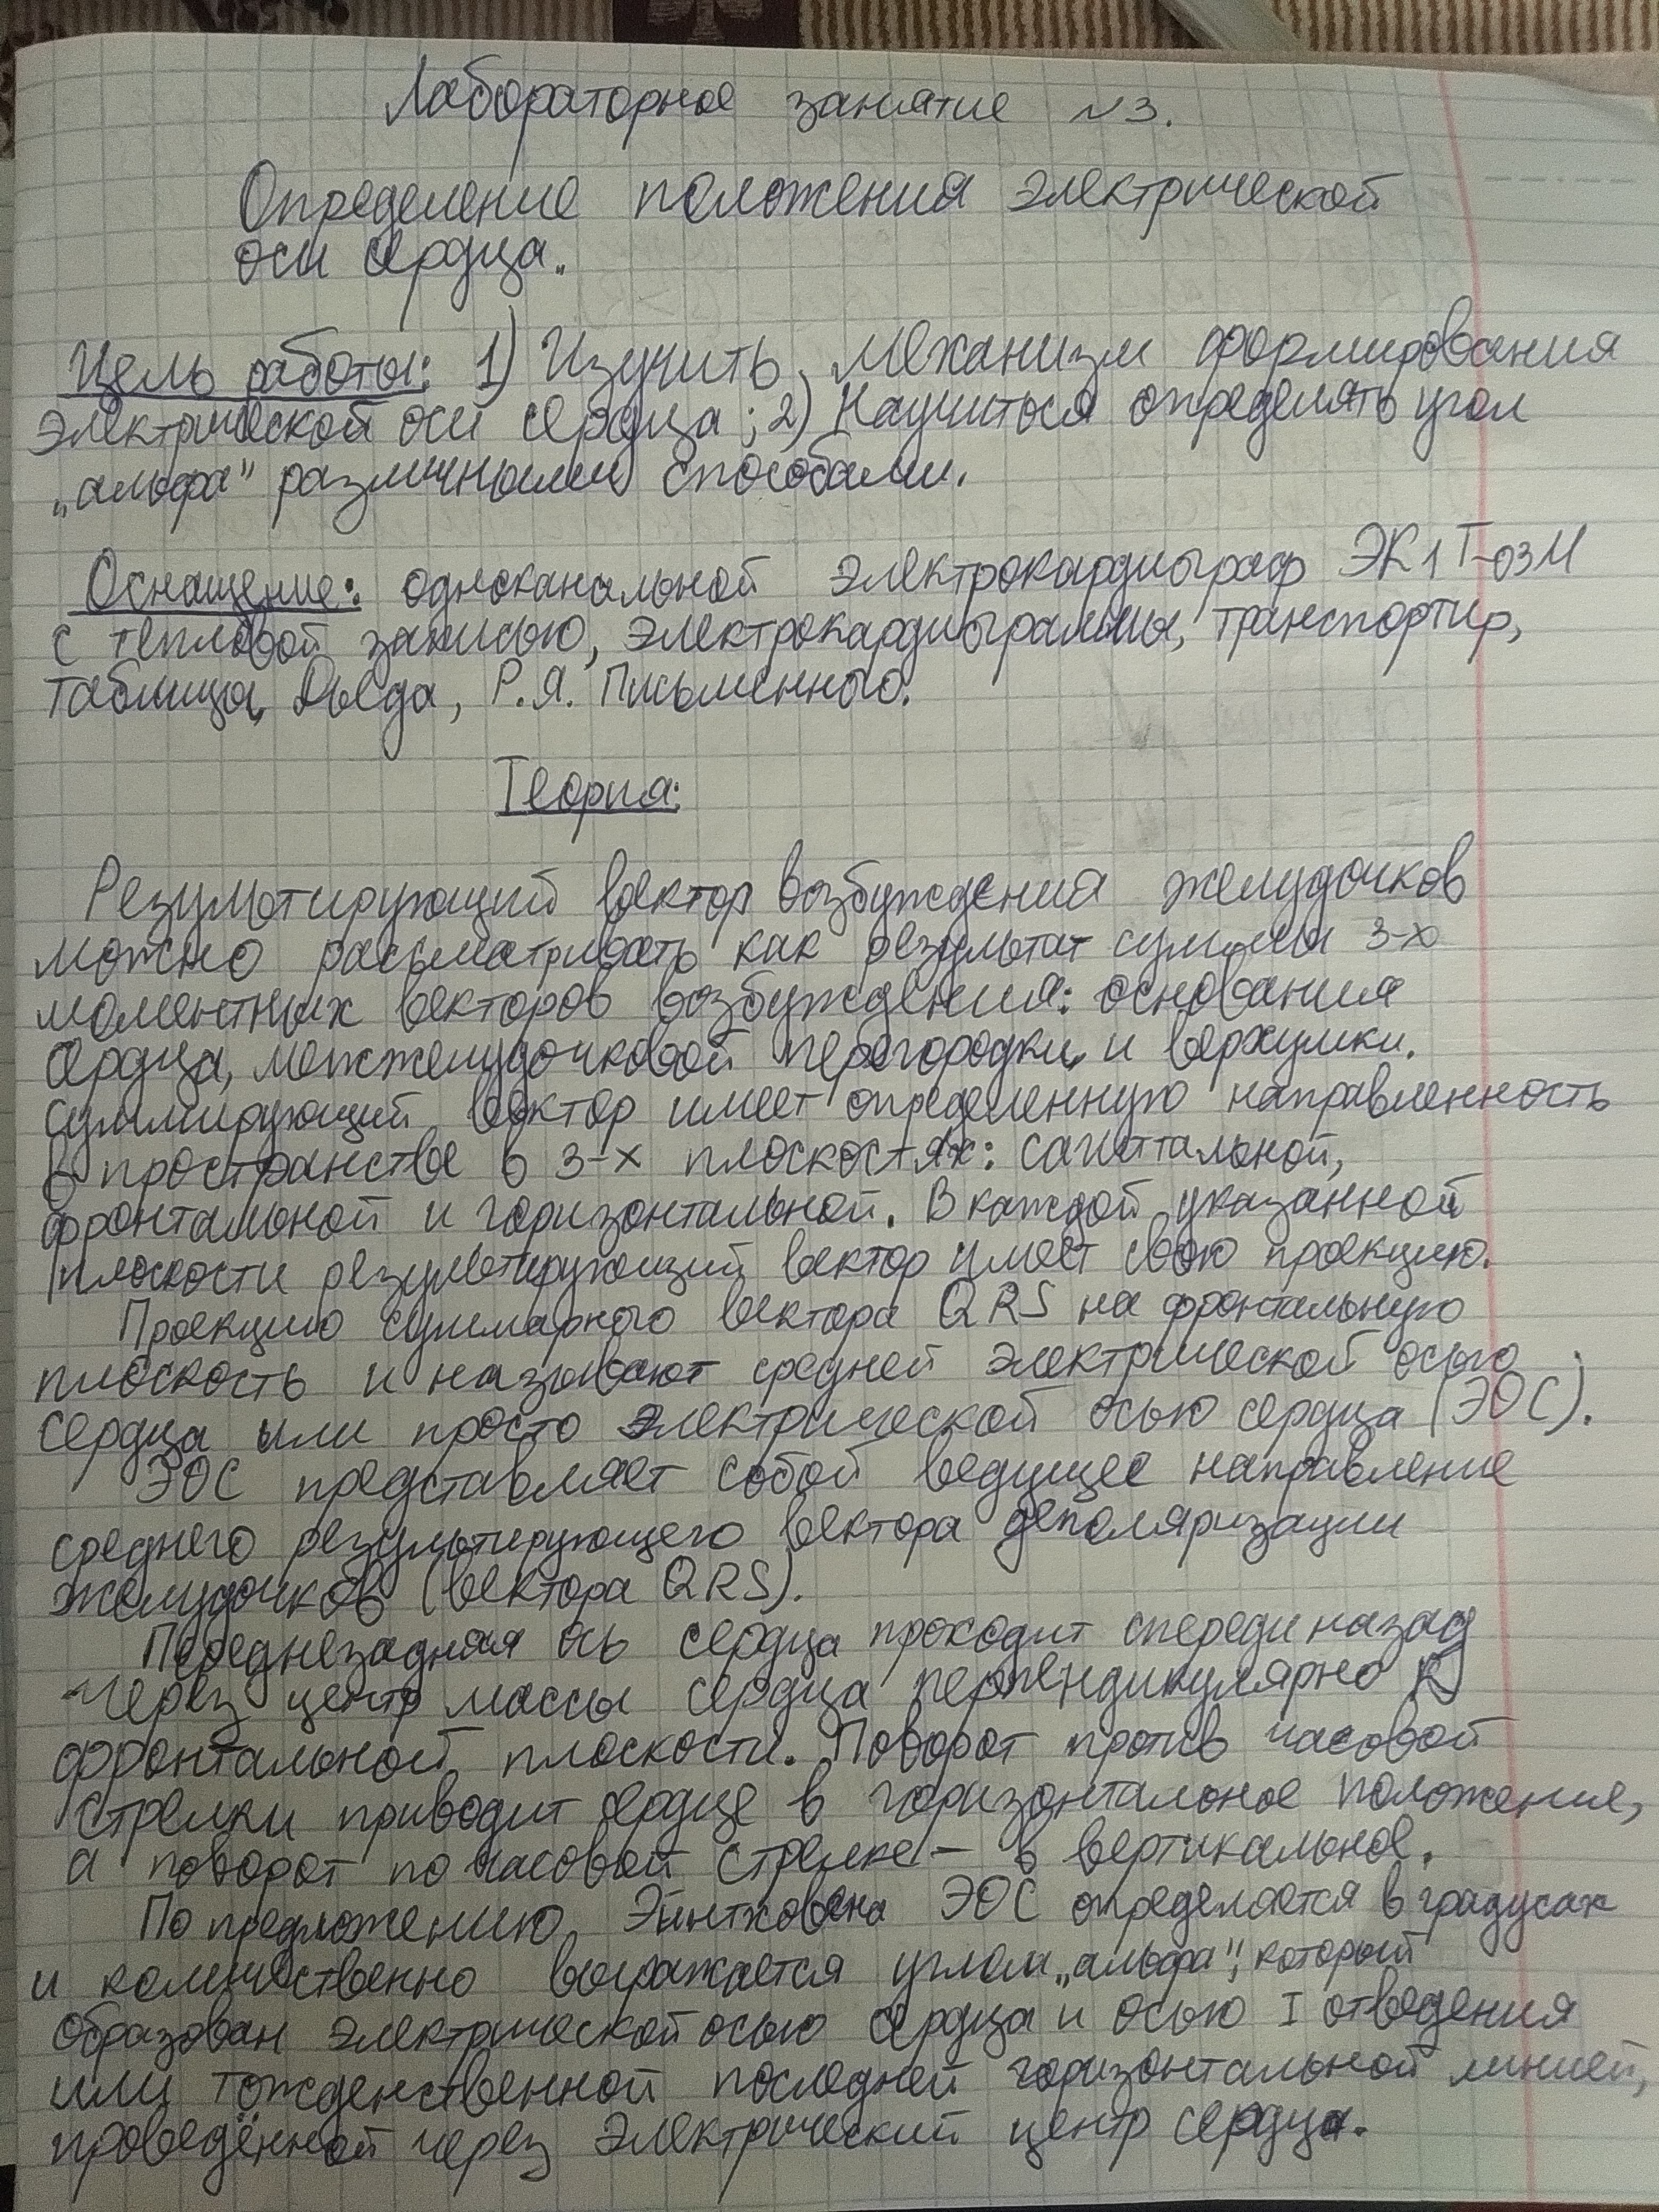 Лабораторное занятие №3.
Определение положения электрической
оси сердца.
Цель работы: 1) Изучить механизм формирования
электрической оси сердца; 2) Научиться определять угол
„альфа" различными способами.
Оснащение: одноканальной электрокардиограф ЭК1Т-03М
с тепловой записью, электрокардиограммы, транспортир,
таблица Дьеда, Р.Я. Письменного.
Теория:
Результирующий вектор возбуждения желудочков
можно рассматривать как результат суммы 3-х
моментных векторов возбуждения: основания
сердца, межжелудочковой перегородки и верхушки.
Суммирующий вектор имеет определенную направленность
в пространстве в 3-х плоскостях: сагиттальной,
фронтальной и горизонтальной. В каждой указанной
плоскости результирующий вектор имеет свою проекцию.
Проекцию суммарного вектора QRS на фронтальную
плоскость и называют средней электрической осью
сердца или просто электрической осью сердца (ЭОС).
ЭОС представляет собой ведущее направление
среднего результирующего вектора деполяризации
желудочков (вектора QRS).
Переднезадняя ось сердца проходит спереди назад
через центр массы сердца перпендикулярно к
фронтальной плоскости. Поворот против часовой
стрелки приводит сердце в горизонтальное положение,
а поворот по часовой стрелке – в вертикальное.
По предложению Эйнтховена ЭОС определяется в градусах
и количественно выражается углом „альфа", который
образован электрической осью сердца и осью I отведения
или тождественной последней горизонтальной линией,
проведённой через электрический центр сердца.